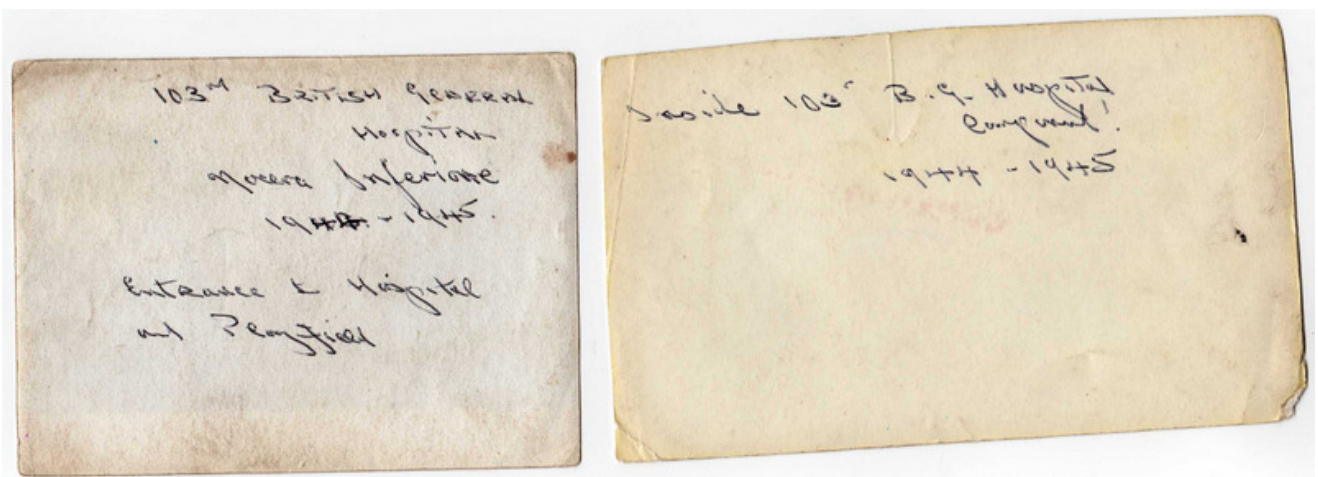 103rd BRITISH GENERAL
Hospital
Nocera Inferiore
1944 - 1945.
Entrance to Hospital
and Playfield
Inside 103rd B.G. Hospital
1944 - 1945